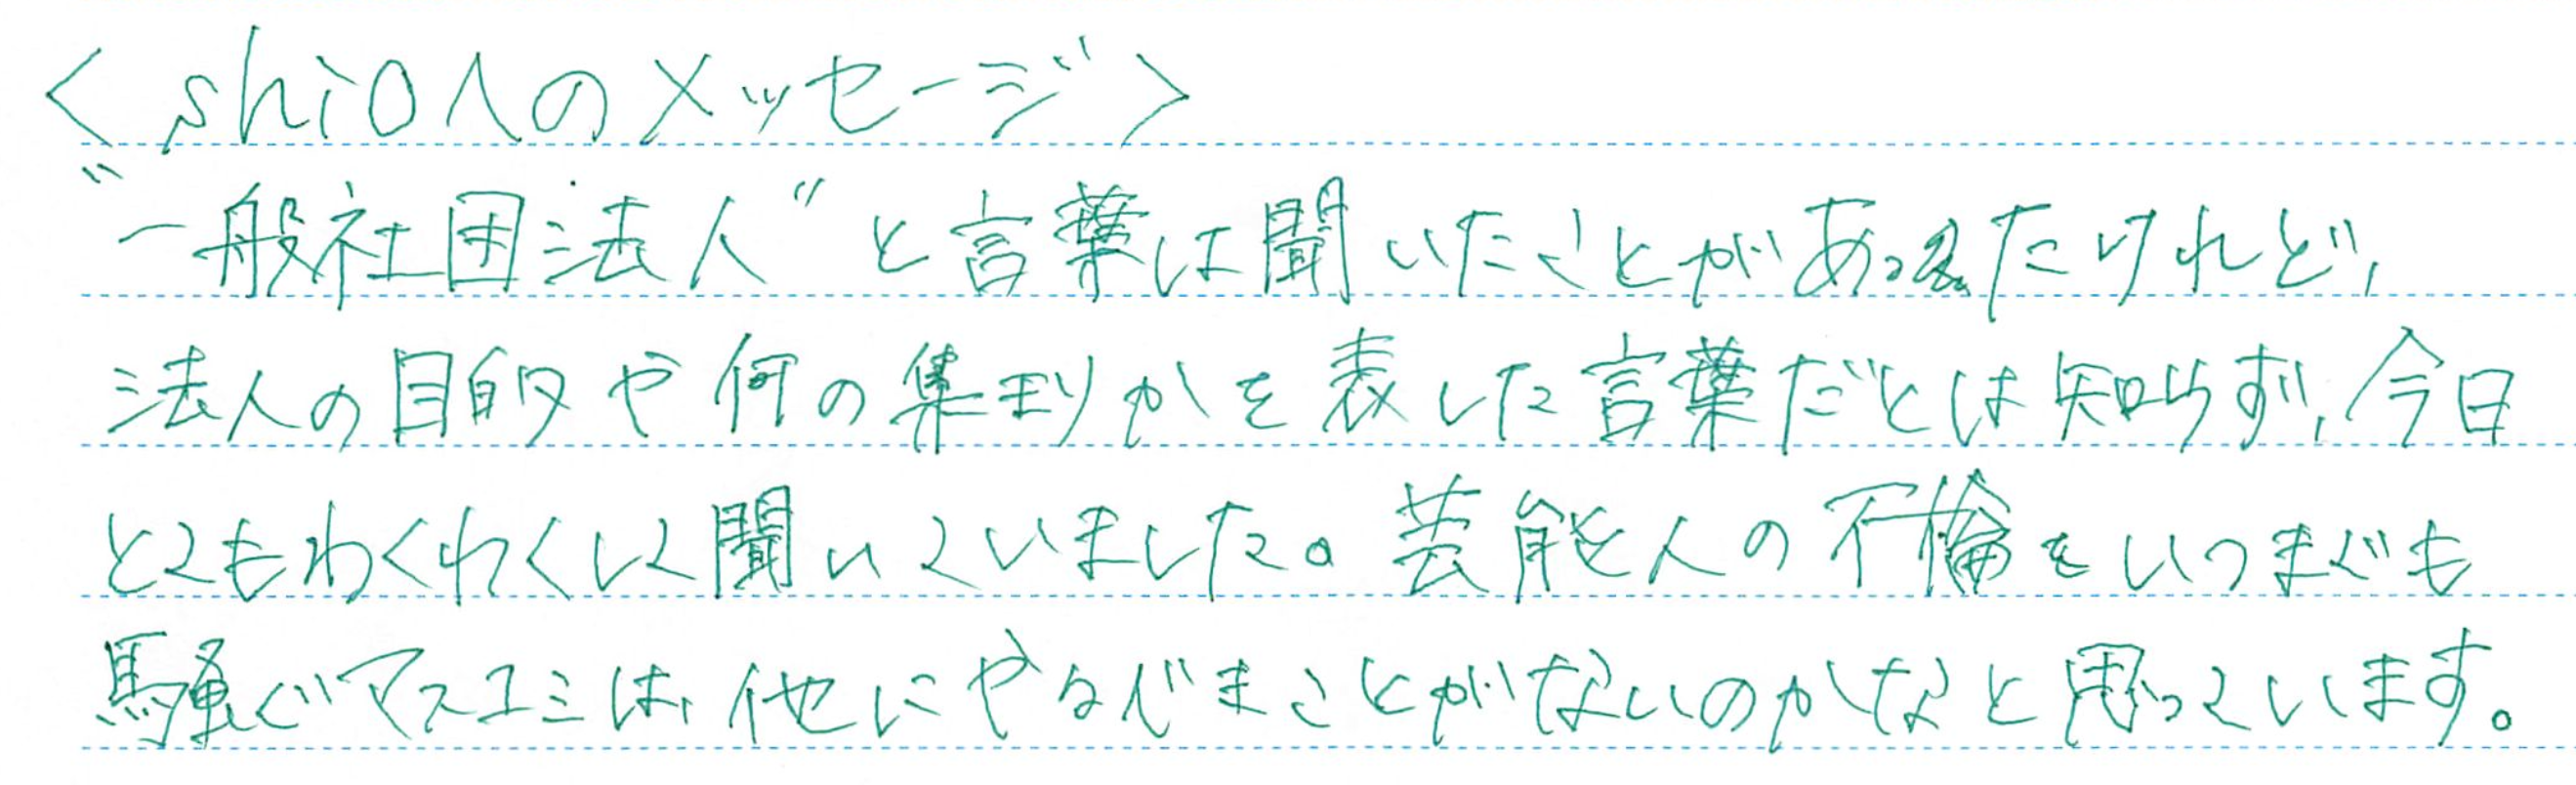 <shioへのメッセージ>
"一般社団法人"と言葉は聞いたことがあったけれど,
法人の目的や何の集まりかを表した言葉だとは知らず,今日
とてもわくわくして聞いていました。芸能人の不倫をいつまでも
騒ぐマスコミは,他にやるべきことがないのかなと思っています。